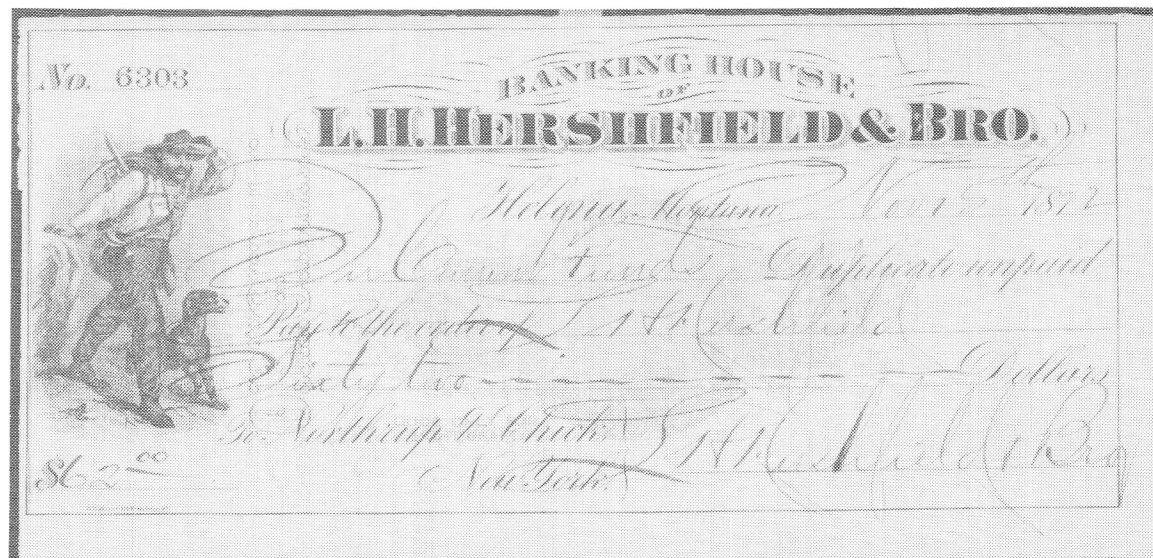 No. 6303
BANKING HOUSE
OF
L. H. HERSHFIELD & BRO.
Helena, Montana Nov 15th 1872
In Current Funds Duplicate unpaid
Pay to the order of L H Hershfield
Sixty two Dollars
To Northrup & Chick
New York.
L H Hershfield & Bro
$62 00